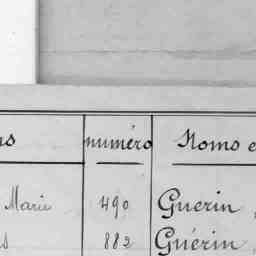 numéro Noms e
Marie 490 Guerin
882 Guérin